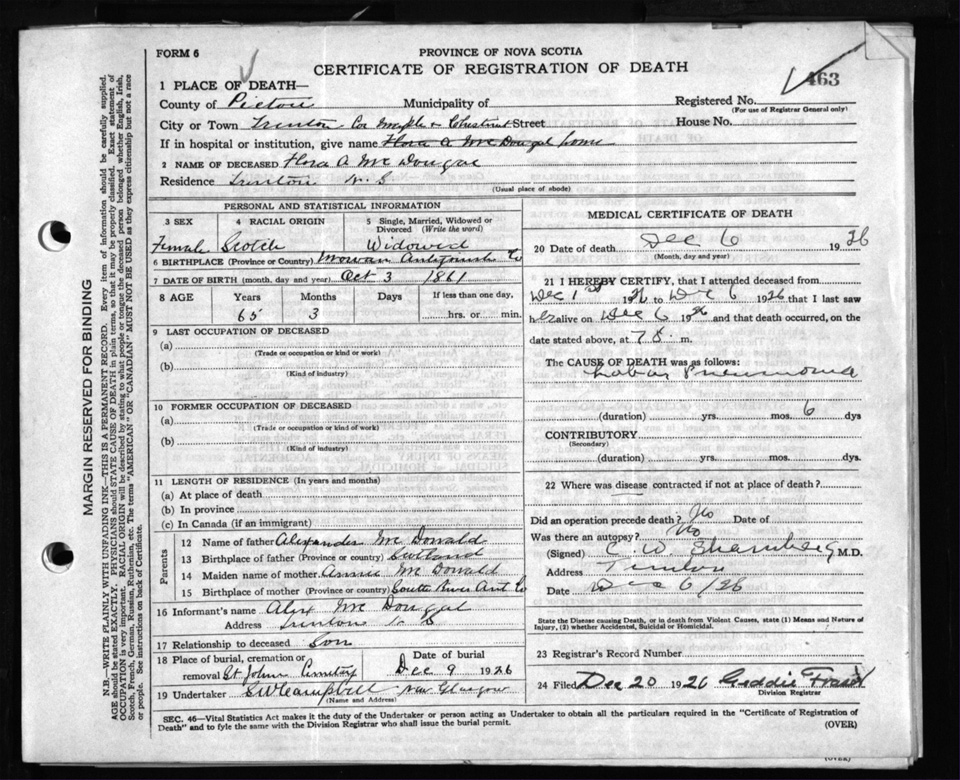 FORM 6
PROVINCE OF NOVA SCOTIA
CERTIFICATE OF REGISTRATION OF DEATH
463
1 PLACE OF DEATH—
County of Pictou Municipality of Registered No.
(For use of Registrar General only)
City or Town Trenton Cor Maple & Chestnut Street House No.
If in hospital or institution, give name Flora A Mc Dougal home
2 NAME OF DECEASED Flora A Mc Dougal
Residence Trenton N. S.
(Usual place of abode)
PERSONAL AND STATISTICAL INFORMATION
3 SEX 4 RACIAL ORIGIN 5 Single, Married, Widowed or Divorced (Write the word)
Female Scotch Widowed
6 BIRTHPLACE (Province or Country) Antigonish Co
7 DATE OF BIRTH (month, day and year) Oct 3 1861
8 AGE Years Months Days If less than one day,
65 3 hrs. or min.
9 LAST OCCUPATION OF DECEASED
(a)
(Trade or occupation or kind or work)
(b)
(Kind of industry)
10 FORMER OCCUPATION OF DECEASED
(a)
(Trade or occupation or kind of work)
(b)
(Kind of industry)
11 LENGTH OF RESIDENCE (In years and months)
(a) At place of death
(b) In province
(c) In Canada (if an immigrant)
Parents
12 Name of father Alexander Mc Donald
13 Birthplace of father (Province or country) Scotland
14 Maiden name of mother Annie Mc Donald
15 Birthplace of mother (Province or country) South River Ant Co
16 Informant's name Alex Mc Dougal
Address Trenton N S
17 Relationship to deceased Son
18 Place of burial, cremation or removal St Johns Cemetry Date of burial Dec 9 1926
19 Undertaker SW Campbell New Glasgow
(Name and Address)
MEDICAL CERTIFICATE OF DEATH
20 Date of death Dec 6 1926
(Month, day and year)
21 I HEREBY CERTIFY, that I attended deceased from
Dec 1st 1926 to Dec 6 1926 that I last saw
her alive on Dec 6 1926 and that death occurred, on the
date stated above, at 7 m.
The CAUSE OF DEATH was as follows:
Lobar Pneumonia
(duration) yrs. mos. 6 dys
CONTRIBUTORY
(Secondary)
(duration) yrs. mos. dys.
22 Where was disease contracted if not at place of death?
Did an operation precede death? No Date of
Was there an autopsy? No
(Signed) C. W. M.D.
Address Trenton
Date Dec 6/26
State the Disease causing Death, or in death from Violent Causes, state (1) Means and Nature of
Injury, (2) whether Accidental, Suicidal or Homicidal.
23 Registrar's Record Number
24 Filed Dec 20 1926 Geddie Fraser
Division Registrar
SEC. 46—Vital Statistics Act makes it the duty of the Undertaker or person acting as Undertaker to obtain all the particulars required in the "Certificate of Registration of
Death" and to fyle the same with the Division Registrar who shall issue the burial permit.
(OVER)
(OVER)
MARGIN RESERVED FOR BINDING
N.B.—WRITE PLAINLY WITH UNFADING INK—THIS IS A PERMANENT RECORD. Every item of information should be carefully supplied.
AGE should be stated EXACTLY. PHYSICIANS should STATE CAUSE OF DEATH in plain terms, so that it may be properly classified. Exact statement of
OCCUPATION is very important. RACIAL ORIGIN will be described by stating to what people or tongue the deceased person belonged whether English, Irish,
Scotch, French, German, Russian, Ruthenian, etc. The terms "AMERICAN" OR "CANADIAN" MUST NOT BE USED as they express citizenship but not a race
or people. See instructions on back of Certificate.